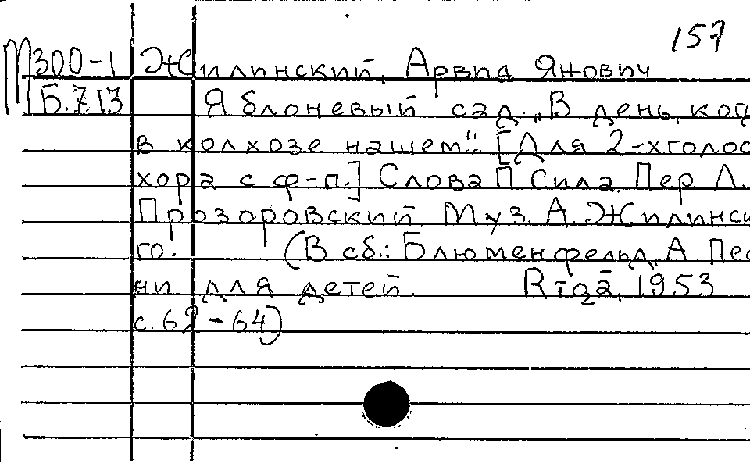 157
М300-1 Жилинский, Арвид Янович
Б.713 Яблоневый сад. „В день, ког
в колхозе нашем". [Для 2-хголос
хора с ф-п.] Слова П. Сила. Пер Л.
Прозоровский Муз. А. Жилинск
го. (В сб.: Блюменфельд, А Пес
ни для детей. Rīgā, 1953
с. 62-64)